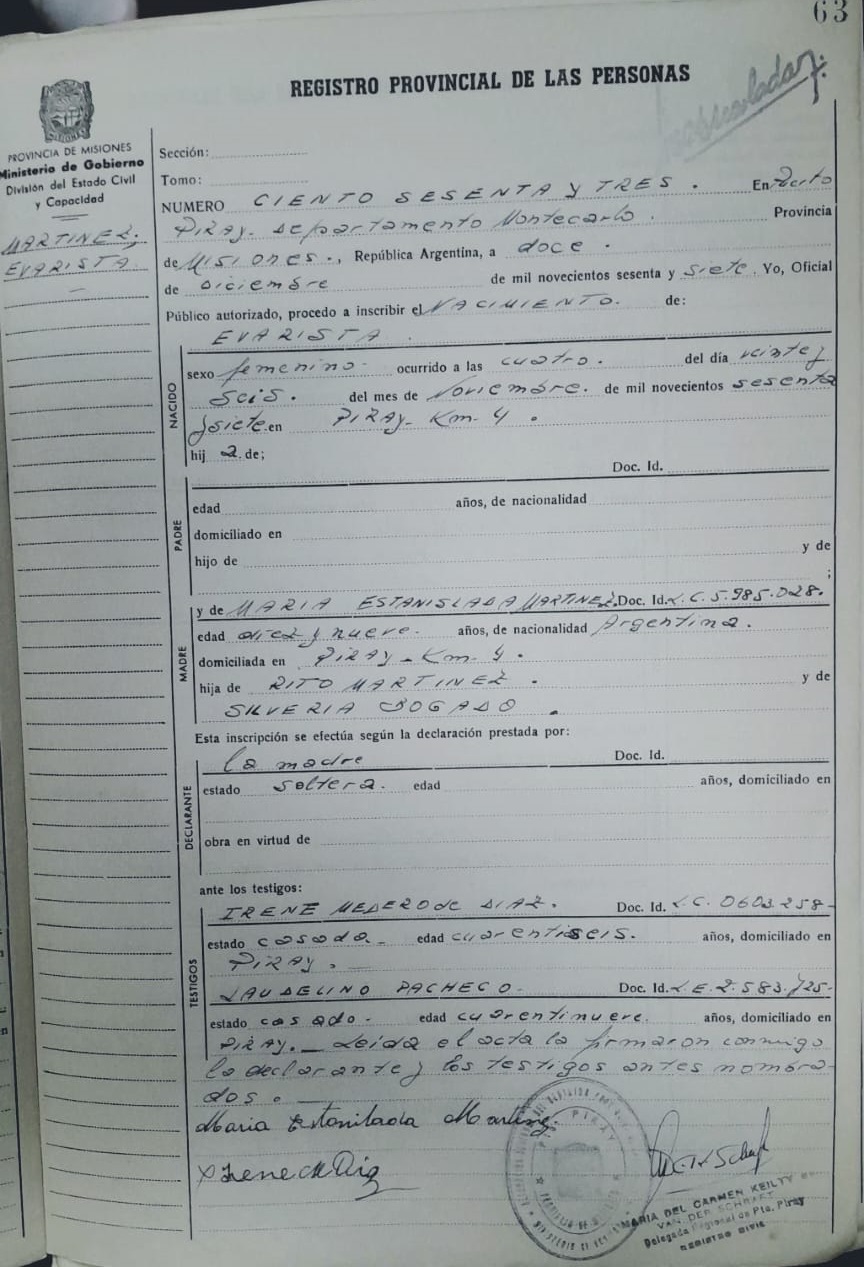 63
REGISTRO PROVINCIAL DE LAS PERSONAS
PROVINCIA DE MISIONES
Ministerio de Gobierno
División del Estado Civil
y Capacidad
MARTINEZ;
EVARISTA
Sección:
Tomo:
NUMERO CIENTO SESENTA y TRES. En Puerto
PIRAY. departamento Montecarlo. Provincia
de MISIONES., República Argentina, a doce.
de Diciembre de mil novecientos sesenta y siete. Yo, Oficial
Público autorizado, procedo a inscribir el NACIMIENTO. de:
EVARISTA.
NACIDO
sexo femenino- ocurrido a las cuatro. del día veinte y
seis. del mes de Noviembre. de mil novecientos sesenta
y siete. en PIRAY- Km. 4.
hij a. de;
PADRE
Doc. Id.
edad años, de nacionalidad
domiciliado en
hijo de y de
;
MADRE
y de MARIA ESTANISLADA MARTINEZ. Doc. Id. L.C. 5.985.028.
edad diez y nueve. años, de nacionalidad Argentina.
domiciliada en PIRAY- Km. 4.
hija de RITO MARTINEZ. y de
SILVERIA BOGADO.
Esta inscripción se efectúa según la declaración prestada por:
DECLARANTE
la madre Doc. Id.
estado soltera. edad años, domiciliado en
obra en virtud de
ante los testigos:
TESTIGOS
IRENE MEDERO de DIAZ. Doc. Id. L.C. 0603.258-
estado casada- edad cuarentiseis. años, domiciliado en
PIRAY.-
LAUDELINO PACHECO- Doc. Id. L.E. 2.583.125-
estado casado- edad cuarentinueve. años, domiciliado en
PIRAY._ Leída el acta la firmaron conmigo
la declarante y los testigos antes nombra-
dos.
Maria Estanilada Martinez
Irene M Diaz
MARIA DEL CARMEN KEILTY
VAN DER SCHRAFT
Delegada Regional de Pto. Piray
REGISTRO CIVIL